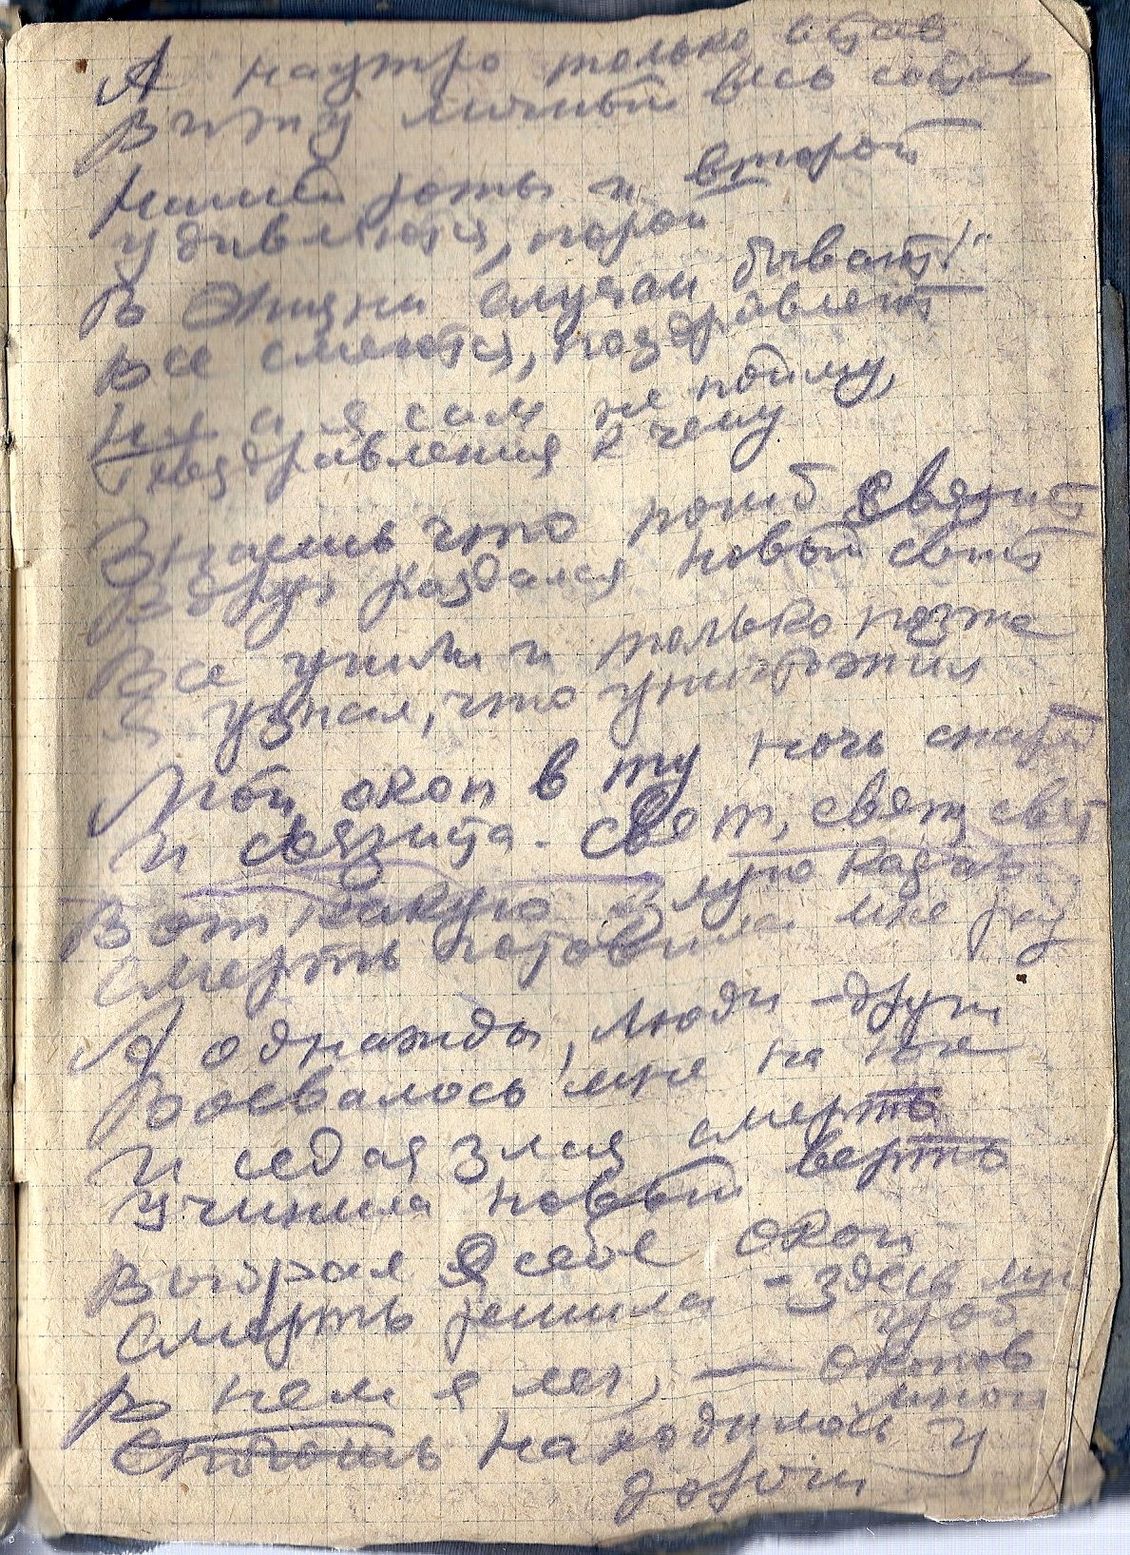 А наутро только встав
Вижу личный весь состав
Нашей роты и второй
удивляются, порой
В жизни случаи бывают!"
Все смеются, поздравляют
Ну а я сам не пойму,
Поздравления к чему
Знаешь что погиб связист
Вдруг раздался новый свист
Все ушли и только позже
Я узнал, что уничтожил
Мой окоп в ту ночь снаряд
И связиста. свят, свят, свят
Вот какую злую
Смерть готовила мне
А однажды, люди-други
Воевалось мне на юге
И седая злая смерть
Учинила новый
Выбрал я себе окоп
Смерть решила - здесь ми
гроб
В нем я лег, - окопов
много
находилось у
дороги